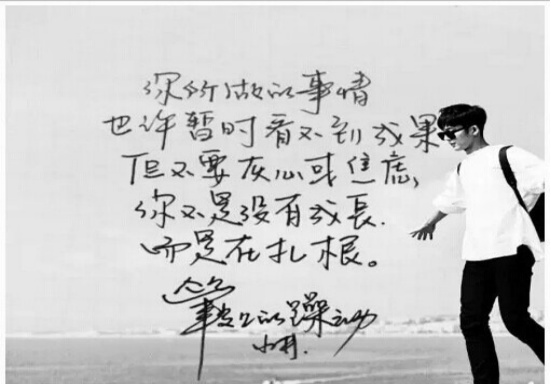 你所做的事情
也许暂时看不到成果
但不要灰心或焦虑,
你不是没有成长.
而是在扎根。
笔尖上的躁动